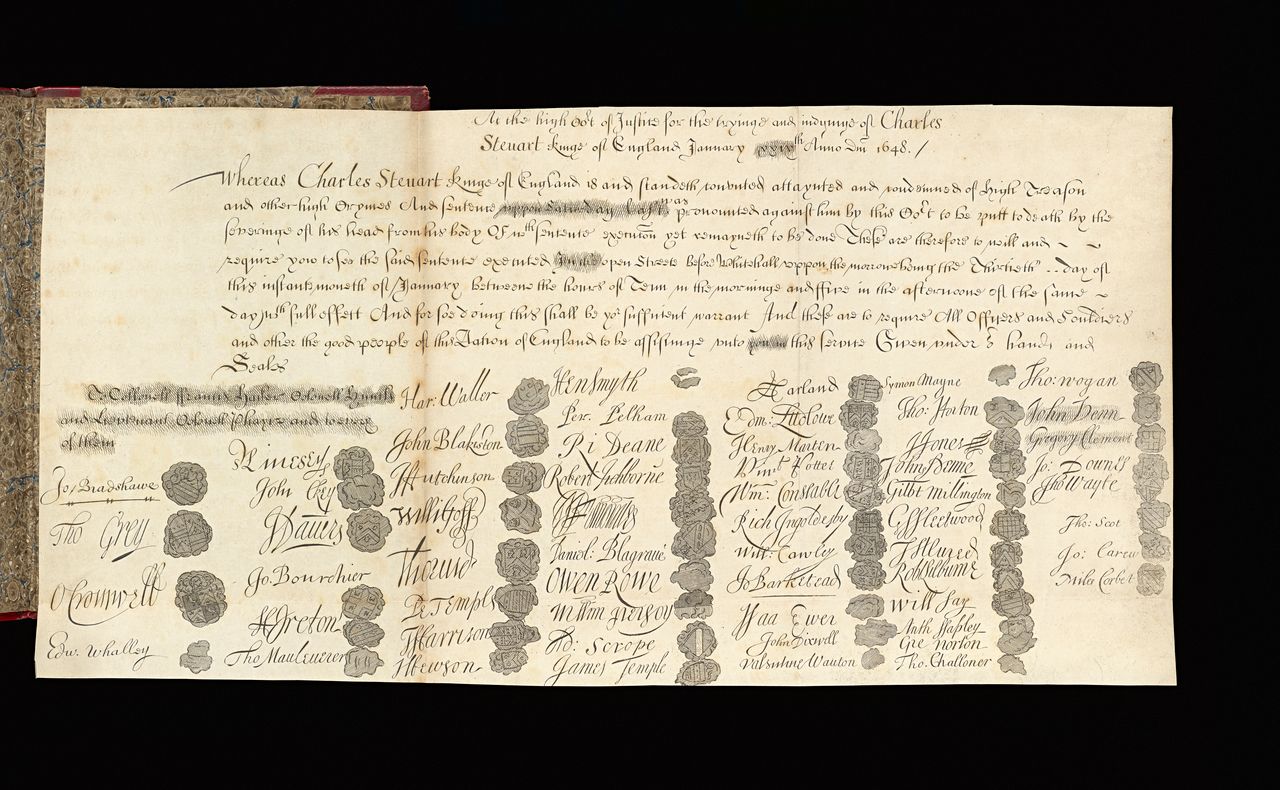 At the high Co^rt of Justice for the tryinge and iudginge of Charles
Steuart kinge of England January xxix^th Anno Dm̃ 1648. /
Whereas Charles Steuart kinge of England is and standeth convicted attaynted and condemned of High Treason
and other high Crymes And sentence uppon Saturday last was pronounced against him by this Co^rt to be putt to death by the
severinge of his head from his body Of w^ch sentence execucõn yet remayneth to be done These are therefore to will and
require you to see the said sentence executed In the open Streete before Whitehall uppon the morrowe being the Thirtieth day of
this instante moneth of January betweene the hours of Tenn in the morninge and ffive in the afternoone of the same
day w^th full effect And for soe doing this shall be yo^r sufficient warrant And these are to require All Officers and Souldiers
and other the good people of this Nation of England to be assistinge unto you in this service Given under o^r hands and
Seales
To Collonell ffrancis Hacker Colonell Huncks
and Lieutenant Colonell Phayre and to every
of them
Jo: Bradshawe
Tho Grey
O Cromwell
Edw. Whalley
M Livesey
John Okey
J Dauers
Jo. Bourchier
H Ireton
Tho Mauleuerer
Har: Waller
John Blakiston
J Hutchinson
Willi Goff
Tho Pride
Pe Temple
T Harrison
J Hewson
Hen Smyth
Per. Pelham
Ri Deane
Robert Tichborne
H Edwardes
Daniel: Blagraue
Owen Rowe
William Purefoy
Ad: Scrope
James Temple
A Garland
Edm: Ludlowe
Henry Marten
Vinct Potter
Wm: Constable
Rich Ingoldesby
Will: Cawley
Jo Barkstead
Isaa Ewer
John Dixwell
Valentine Wauton
Symon Mayne
Tho: Horton
J Jones
John Penne
Gilbt Millington
G Fleetwood
J Alured
Rob Lilburne
Will Say
Anth Stapley
Gre Norton
Tho. Challoner
Tho: Wogan
John Venn
Gregory Clement
Jo: Downes
Tho Wayte
Tho: Scot
Jo: Carew
Miles Corbet